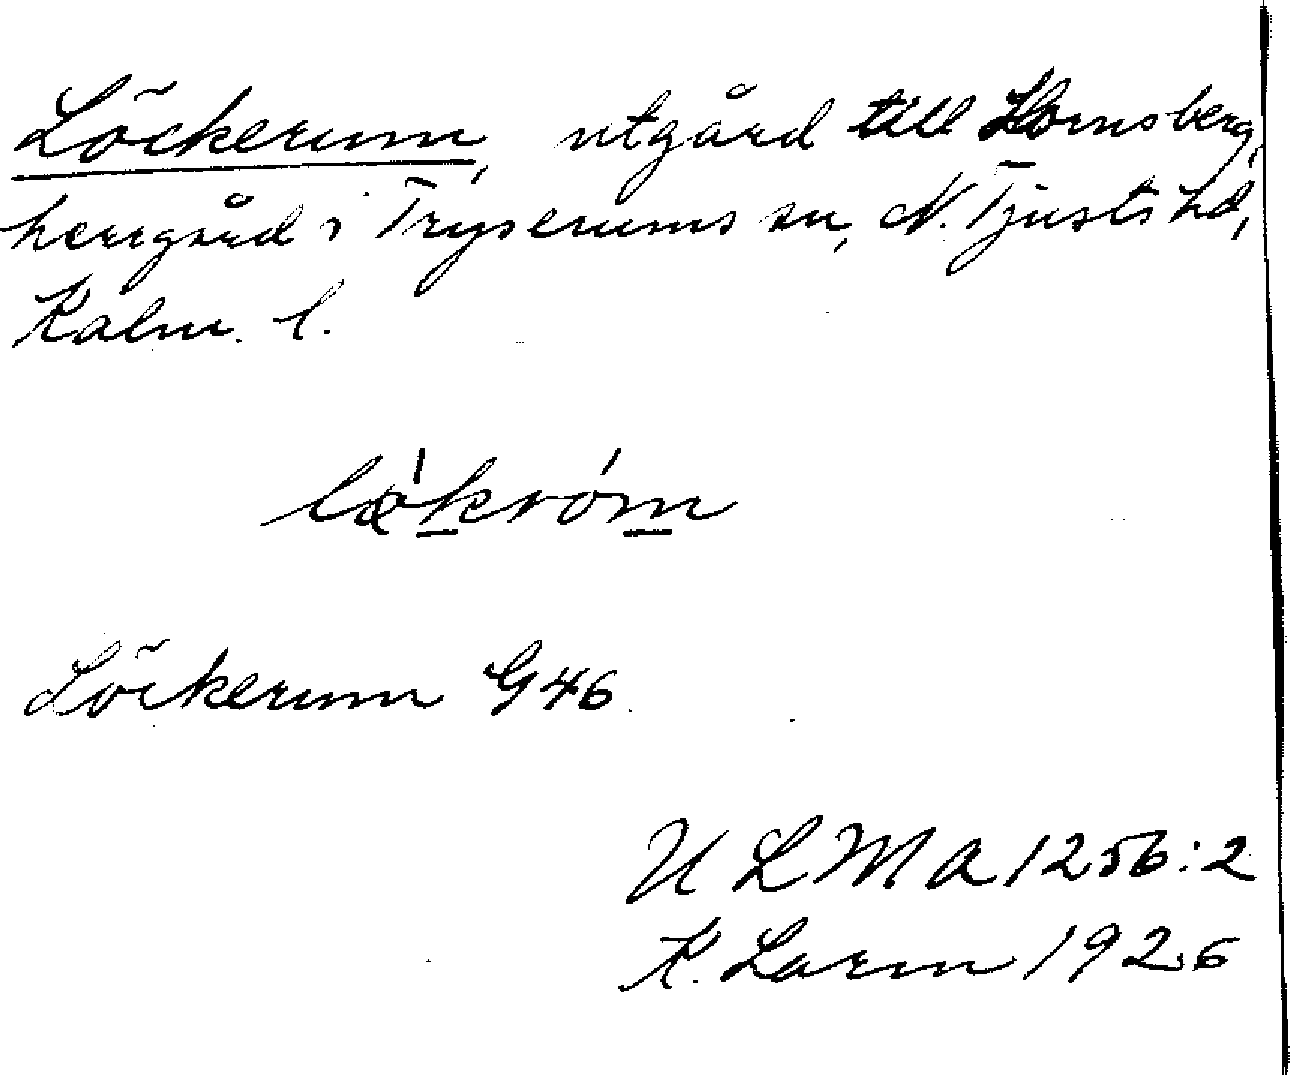 Löckerum, utgård till Hornsberg,
herrgård i Tryserums sn, N. Tjusts hd,
Kalm. l.
Löckerum G46
ULMA 1256:2
K. Larm 1926